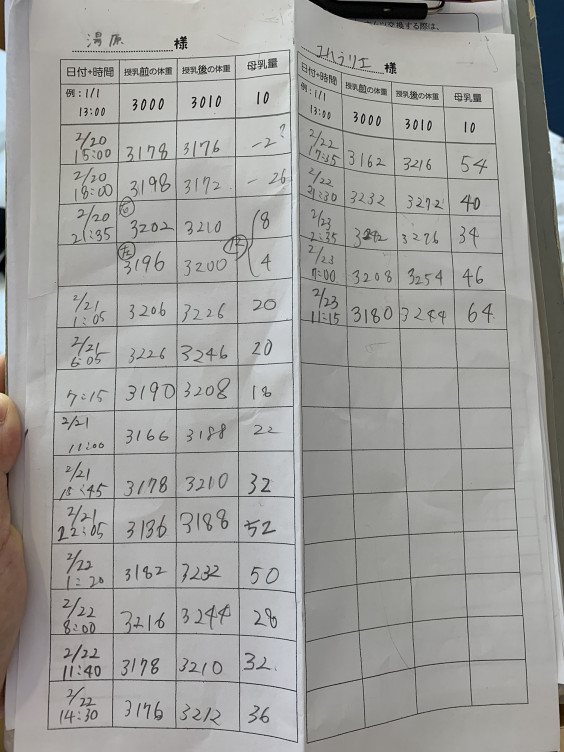 湯原 様
日付+時間 授乳前の体重 授乳後の体重 母乳量
例:1/1 13:00 3000 3010 10
2/20 15:00 3178 3176 -2?
2/20 18:00 3198 3172 -26
2/20 21:35 3202 3210 8
3196 3200 4
2/21 1:05 3206 3226 20
2/21 6:05 3226 3246 20
7:15 3190 3208 18
2/21 11:00 3166 3188 22
2/21 3178 3210 32
2/21 22:05 3136 3188 52
2/22 1:20 3182 3232 50
2/22 8:00 3216 3244 28
2/22 11:40 3178 3210 32
2/22 14:30 3176 3212 36
様
日付+時間 授乳前の体重 授乳後の体重 母乳量
例:1/1 13:00 3000 3010 10
2/22 17:35 3162 3216 54
2/22 21:30 3232 3272 40
2/23 2:35 3276 34
2/23 7:00 3208 3254 46
2/23 11:15 3180 3244 64